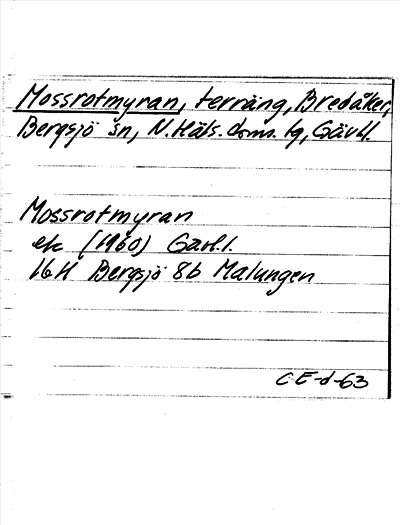 Mossrotmyran, terräng, Bredåker,
Bergsjö sn, N. Häls. doms. tg, Gävl.
Mossrotmyran
ek (1960) Gävl. l.
16H Bergsjö 8b Malungen
CE-d-63